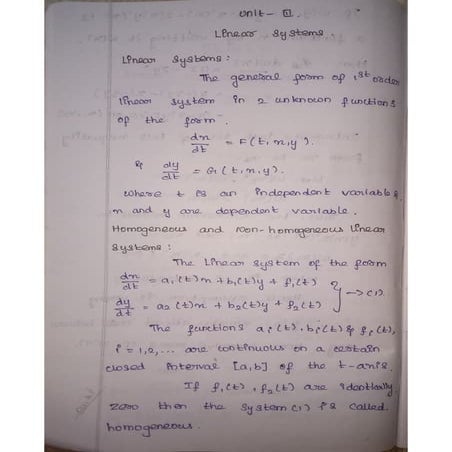 Unit - II.
Linear Systems.
Linear Systems:
The general form of 1st order
linear system in 2 unknown functions
of the form.
dx/dt = F(t, x, y).
& dy/dt = G(t, x, y).
where t is an independent variable &
x and y are dependent variable.
Homogeneous and non-homogeneous linear
systems:
The linear system of the form
dx/dt = a₁(t)x + b₁(t)y + f₁(t)
dy/dt = a₂(t)x + b₂(t)y + f₂(t) } → (1)
The functions aᵢ(t), bᵢ(t) & fᵢ(t),
i = 1,2,... are continuous on a certain
closed interval [a,b] of the t-axis.
If f₁(t), f₂(t) are identically
zero then the system (1) is called
homogeneous.